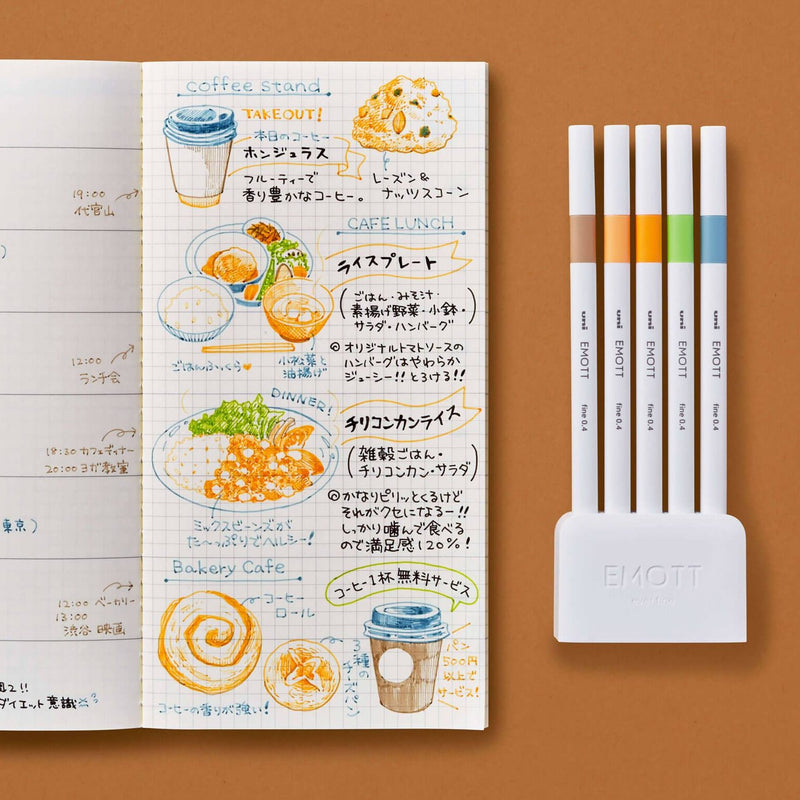 19:00
代官山
12:00
ランチ会
18:30 カフェディナー
20:00 ヨガ教室
東京)
12:00 ベーカリー
13:00
渋谷 映画
ダイエット意識
coffee stand
TAKEOUT!
本日のコーヒー
ホンジュラス
フルーティーで
香り豊かなコーヒー。
レーズン&
ナッツスコーン
CAFE LUNCH
ライスプレート
(ごはん・みそ汁・
素揚げ野菜・小鉢・
サラダ・ハンバーグ)
◎オリジナルトマトソースの
ハンバーグはやわらか
ジューシー!!とろける!!
ごはんふっくら♥
小松菜と
油揚げ
DINNER!
チリコンカンライス
(雑穀ごはん・
チリコンカン・サラダ)
◎かなりピリッとくるけど
それがクセになるー!!
しっかり噛んで食べる
ので満足感120%!
ミックスビーンズが
た〜っぷりでヘルシー!
Bakery Cafe
コーヒー1杯無料サービス
コーヒー
ロール
3種の
チーズパン
パン
500円
以上で
サービス!
コーヒーの香りが強い!
uni EMOTT fine 0.4
uni EMOTT fine 0.4
uni EMOTT fine 0.4
uni EMOTT fine 0.4
uni EMOTT fine 0.4
EMOTT